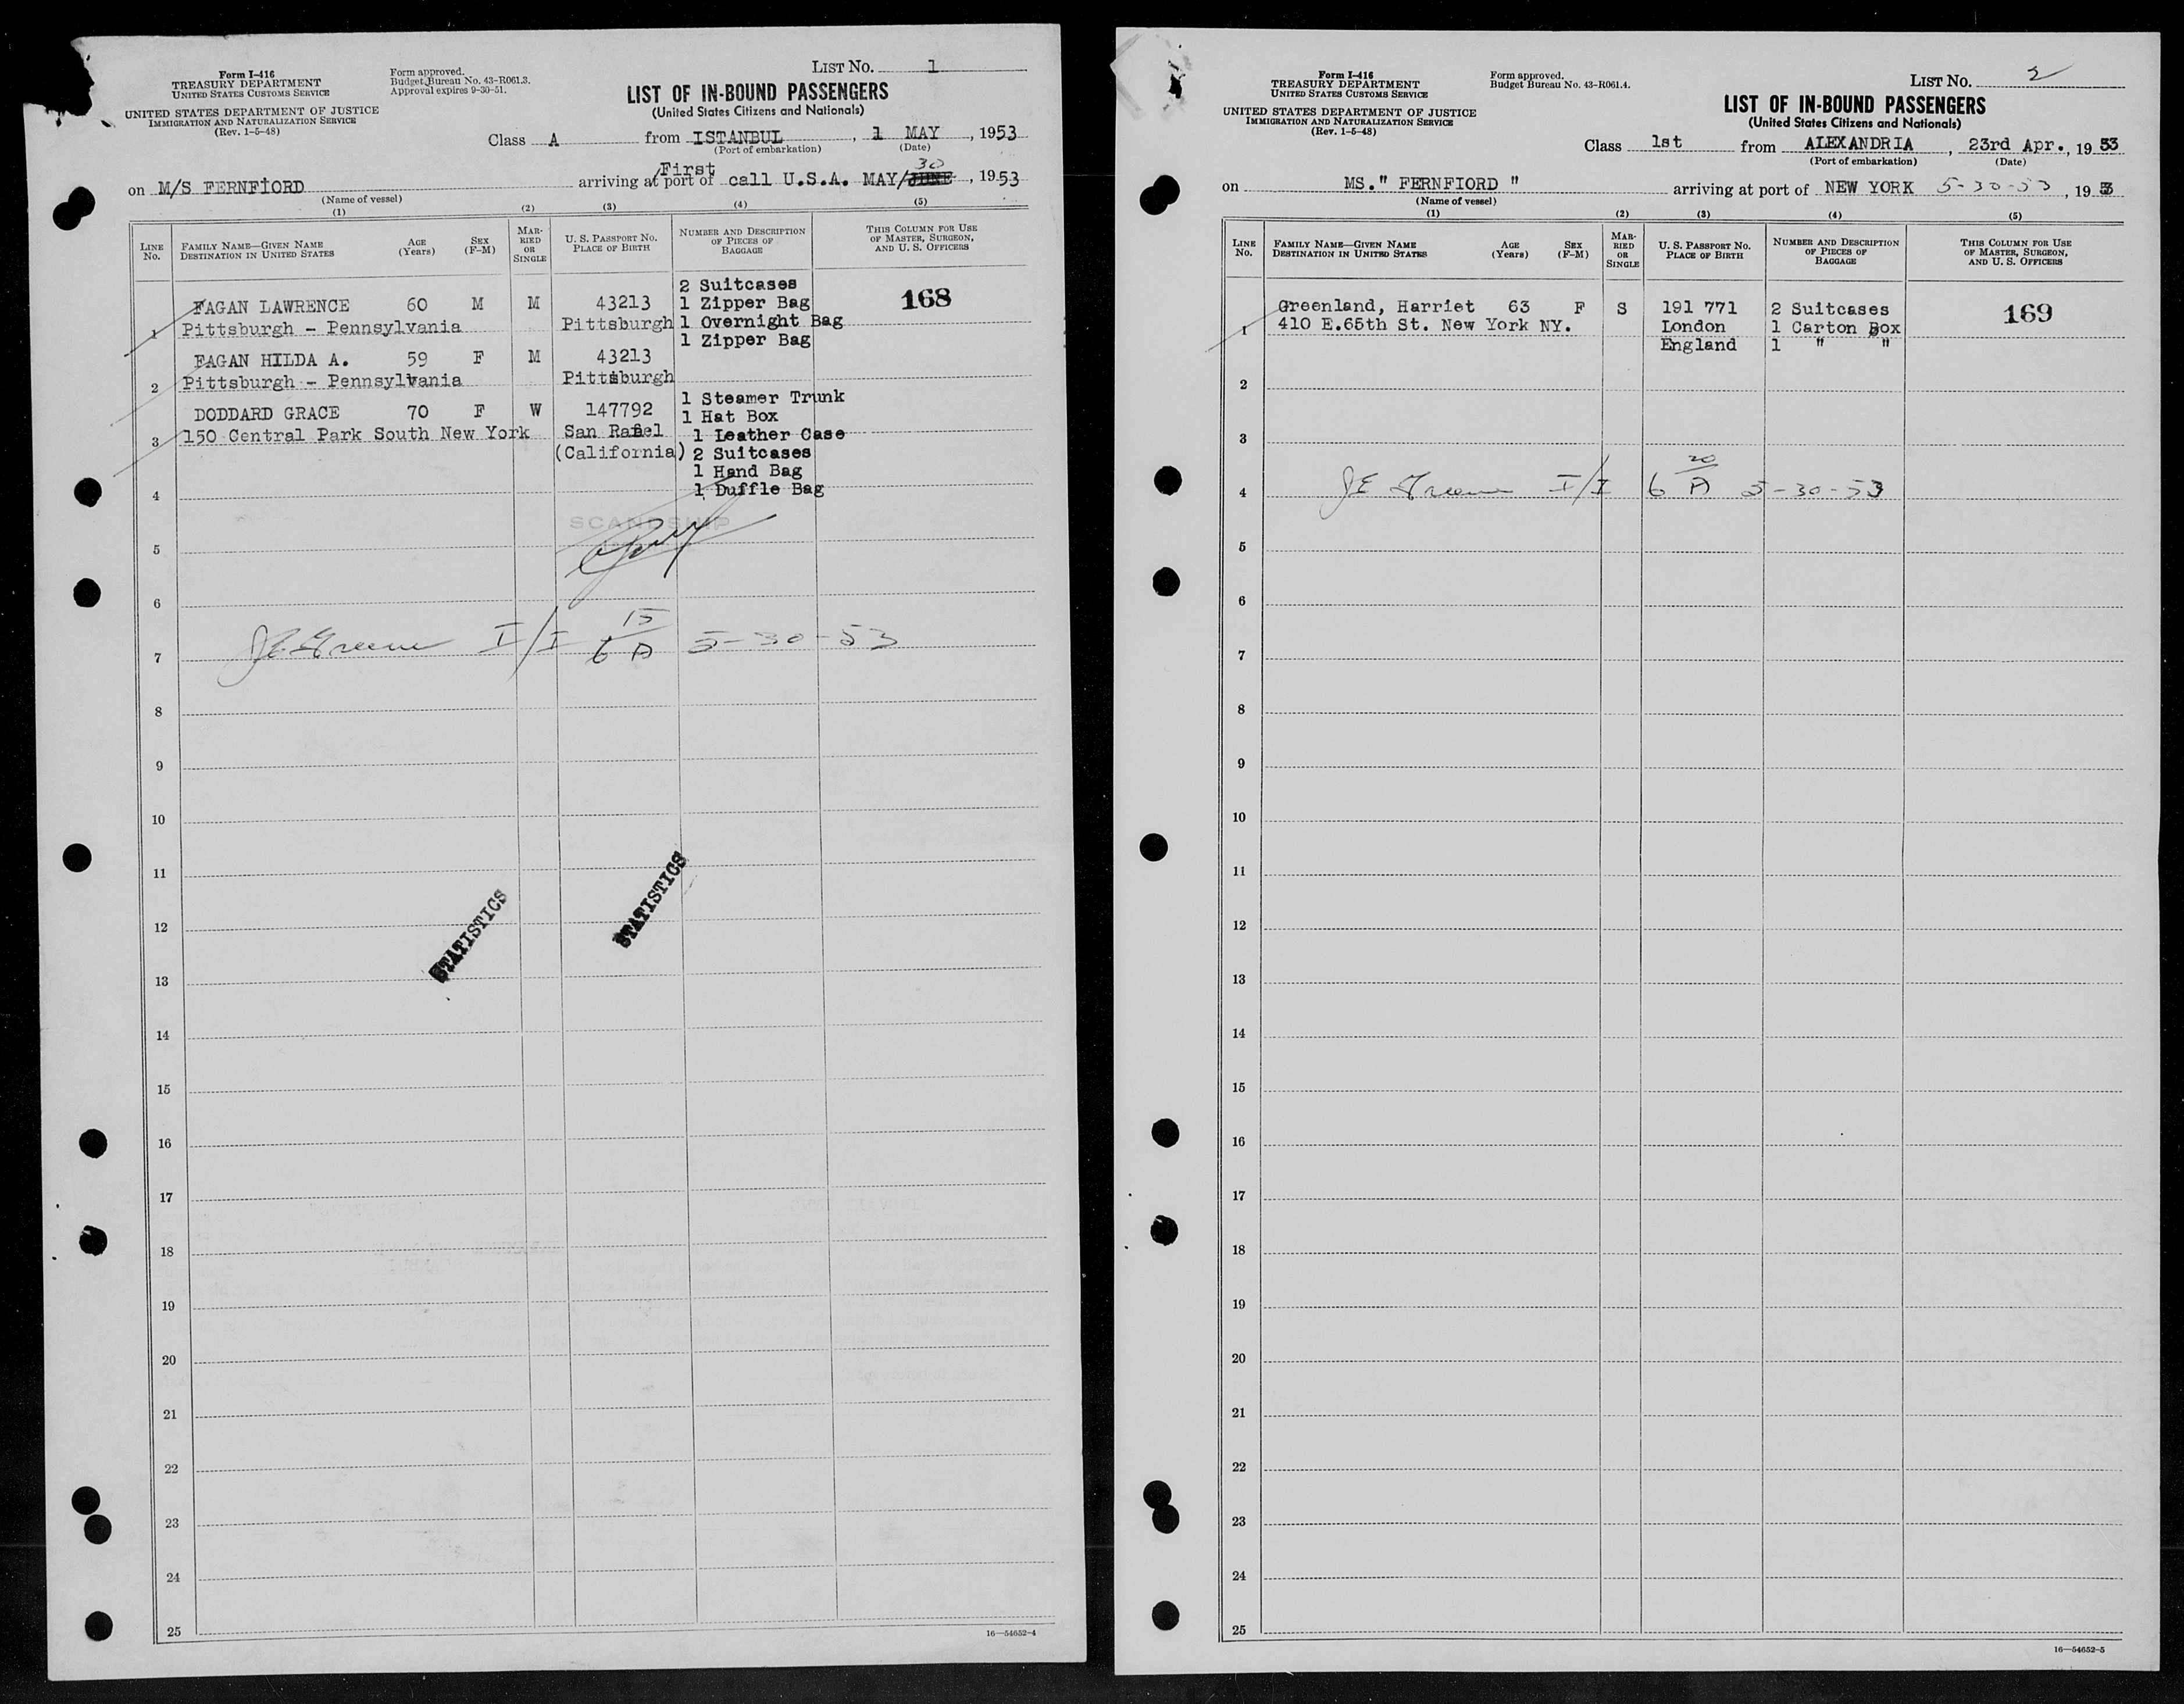 Form I-416
TREASURY DEPARTMENT
UNITED STATES CUSTOMS SERVICE
UNITED STATES DEPARTMENT OF JUSTICE
IMMIGRATION AND NATURALIZATION SERVICE
(Rev. 1-5-48)
Form approved.
Budget Bureau No. 43-R061.3.
Approval expires 9-30-51.
LIST NO. 1
LIST OF IN-BOUND PASSENGERS
(United States Citizens and Nationals)
Class A from ISTANBUL, 1 MAY, 1953
(Port of embarkation) (Date)
First 30
on M/S FERNFIORD arriving at/port of call U.S.A. MAY/JUNE, 1953
(Name of vessel)
(1) (2) (3) (4) (5)
LINE NO. FAMILY NAME—GIVEN NAME DESTINATION IN UNITED STATES AGE (Years) SEX (F-M) MARRIED OR SINGLE U. S. PASSPORT NO. PLACE OF BIRTH NUMBER AND DESCRIPTION OF PIECES OF BAGGAGE THIS COLUMN FOR USE OF MASTER, SURGEON, AND U. S. OFFICERS
2 Suitcases
FAGAN LAWRENCE 60 M M 43213 1 Zipper Bag 168
1 Pittsburgh - Pennsylvania Pittsburgh 1 Overnight Bag
1 Zipper Bag
FAGAN HILDA A. 59 F M 43213
2 Pittsburgh - Pennsylvania Pittsburgh
1 Steamer Trunk
DODDARD GRACE 70 F W 147792 1 Hat Box
3 150 Central Park South New York San Rafael 1 Leather Case
(California) 2 Suitcases
1 Hand Bag
4 1 Duffle Bag
SCANDSHIP
5
6
7 JE Greene I/I 6 15/A 5-30-53
8
9
10
11
12
STATISTICS STATISTICS
13
14
15
16
17
18
19
20
21
22
23
24
25
16—54652-4
Form I-416
TREASURY DEPARTMENT
UNITED STATES CUSTOMS SERVICE
UNITED STATES DEPARTMENT OF JUSTICE
IMMIGRATION AND NATURALIZATION SERVICE
(Rev. 1-5-48)
Form approved.
Budget Bureau No. 43-R061.4.
LIST NO. 2
LIST OF IN-BOUND PASSENGERS
(United States Citizens and Nationals)
Class 1st from ALEXANDRIA, 23rd Apr., 1953
(Port of embarkation) (Date)
on MS." FERNFIORD " arriving at port of NEW YORK 5-30-53, 193
(Name of vessel)
(1) (2) (3) (4) (5)
LINE NO. FAMILY NAME—GIVEN NAME DESTINATION IN UNITED STATES AGE (Years) SEX (F-M) MARRIED OR SINGLE U. S. PASSPORT NO. PLACE OF BIRTH NUMBER AND DESCRIPTION OF PIECES OF BAGGAGE THIS COLUMN FOR USE OF MASTER, SURGEON, AND U. S. OFFICERS
Greenland, Harriet 63 F S 191 771 2 Suitcases 169
1 410 E.65th St. New York NY. London 1 Carton Box
England 1 " "
2
3
4 JE Greene I/I 6 20/A 5-30-53
5
6
7
8
9
10
11
12
13
14
15
16
17
18
19
20
21
22
23
24
25
16—54652-5